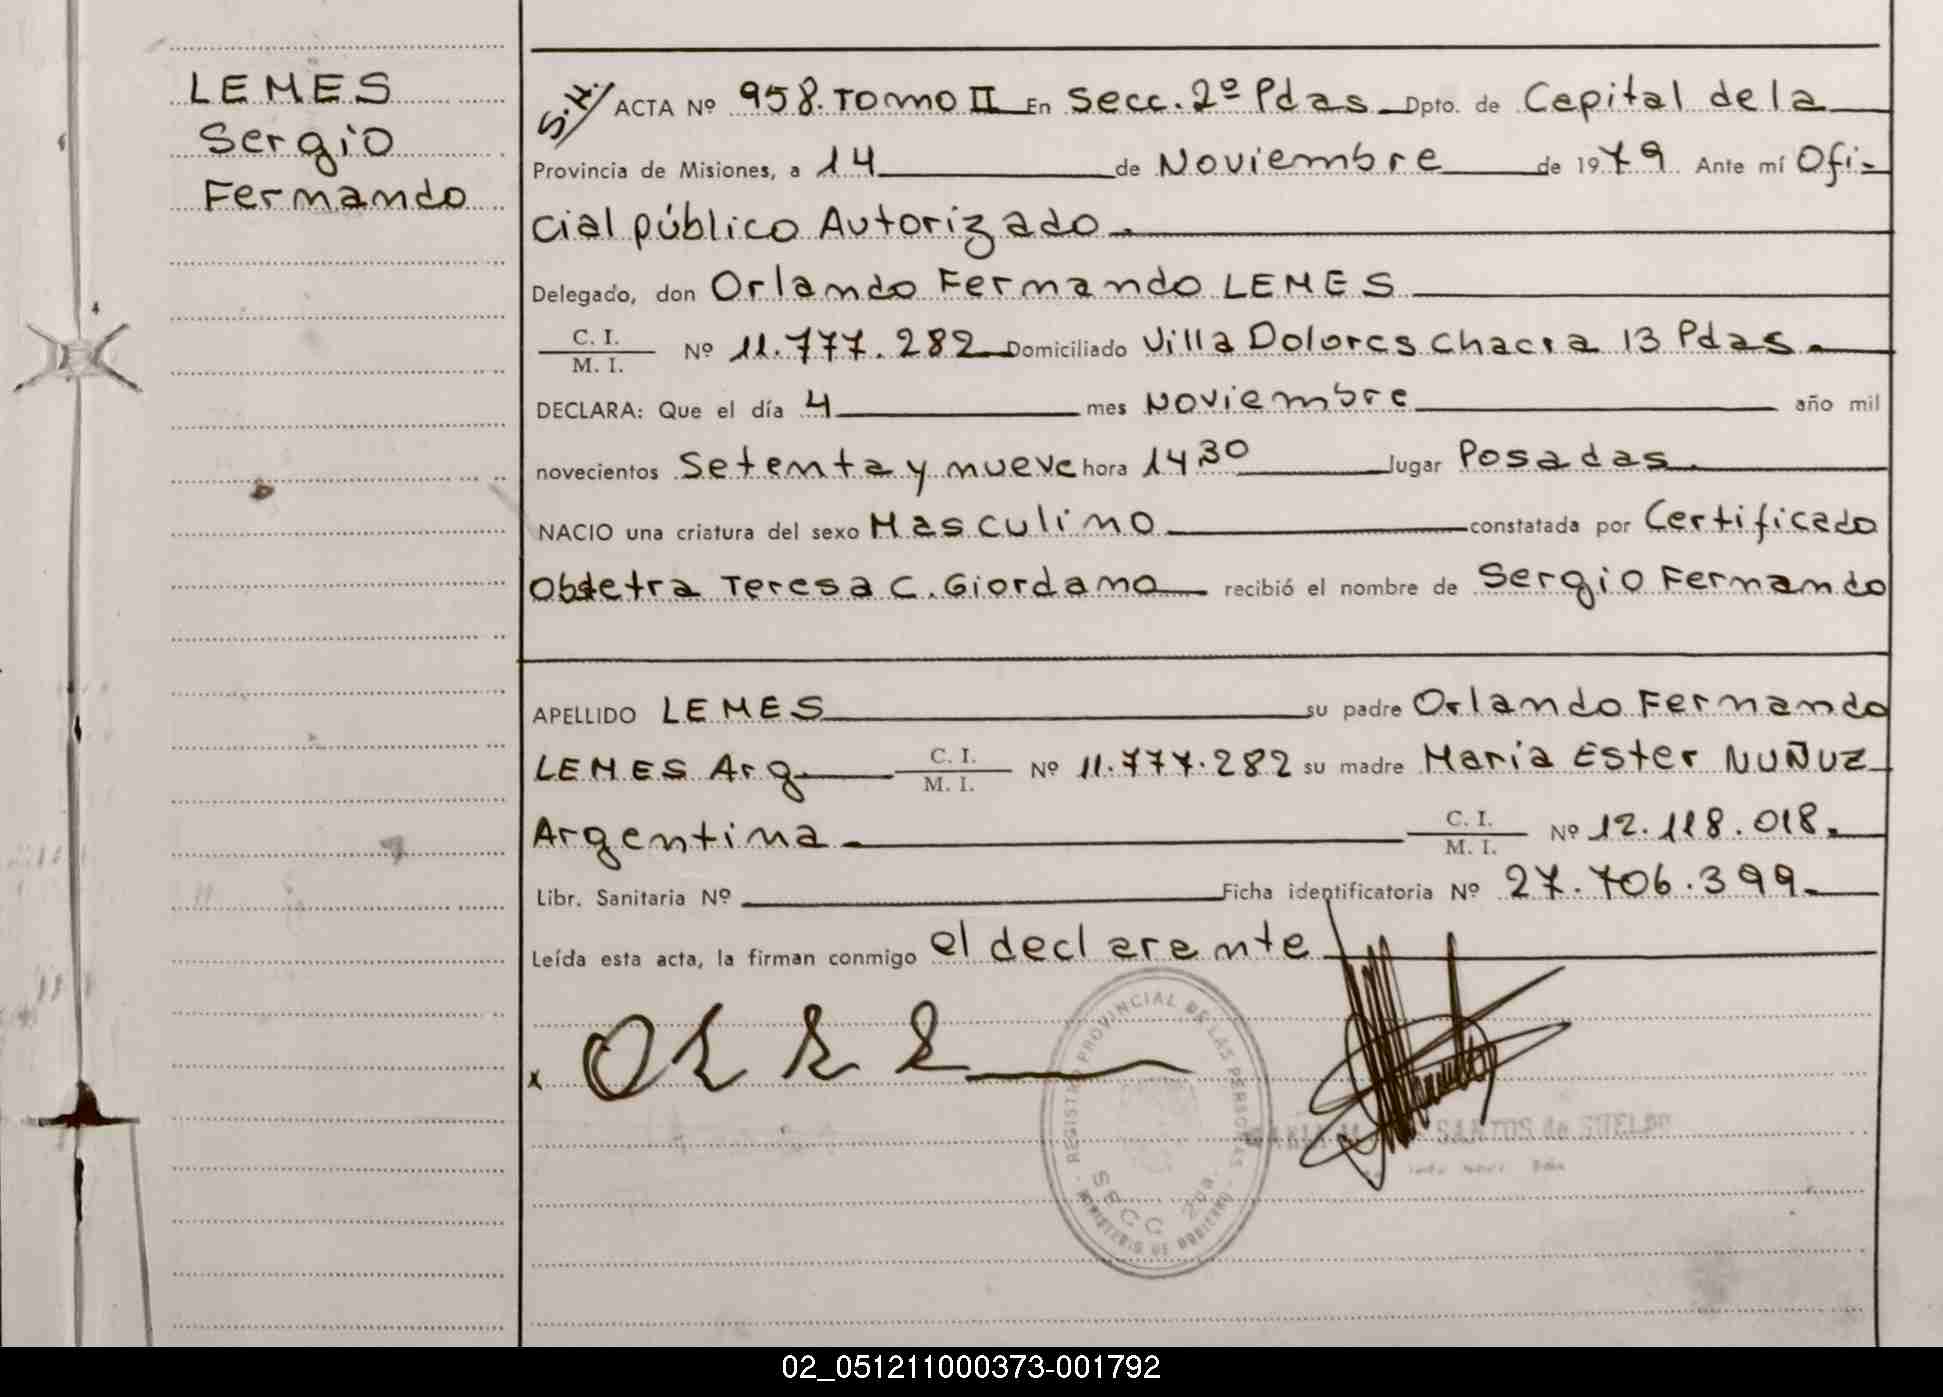 LEMES
Sergio
Fernando
S.H./ ACTA Nº 958. Tomo II En Secc. 2º Pdas. Dpto. de Capital de la
Provincia de Misiones, a 14 de Noviembre de 1979 Ante mí Ofi-
cial público Autorizado.
Delegado, don Orlando Fernando LEMES
C. I.
M. I. Nº 11.777.282 Domiciliado Villa Dolores chacra 13 Pdas.
DECLARA: Que el día 4 mes Noviembre año mil
novecientos Setenta y nueve hora 14 30 lugar Posadas.
NACIO una criatura del sexo Masculino constatada por Certificado
Obstetra Teresa C. Giordano recibió el nombre de Sergio Fernando
APELLIDO LEMES su padre Orlando Fernando
LEMES Arg C. I.
M. I. Nº 11.777.282 su madre María Ester NUÑUZ
Argentina. C. I.
M. I. Nº 12.118.018.
Libr. Sanitaria Nº Ficha identificatoria Nº 27.706.399.
Leída esta acta, la firman conmigo el declarante
x
REGISTRO PROVINCIAL DE LAS PERSONAS
SECC 2da.
MINISTERIO DE GOBIERNO
SANTOS de
02_051211000373-001792